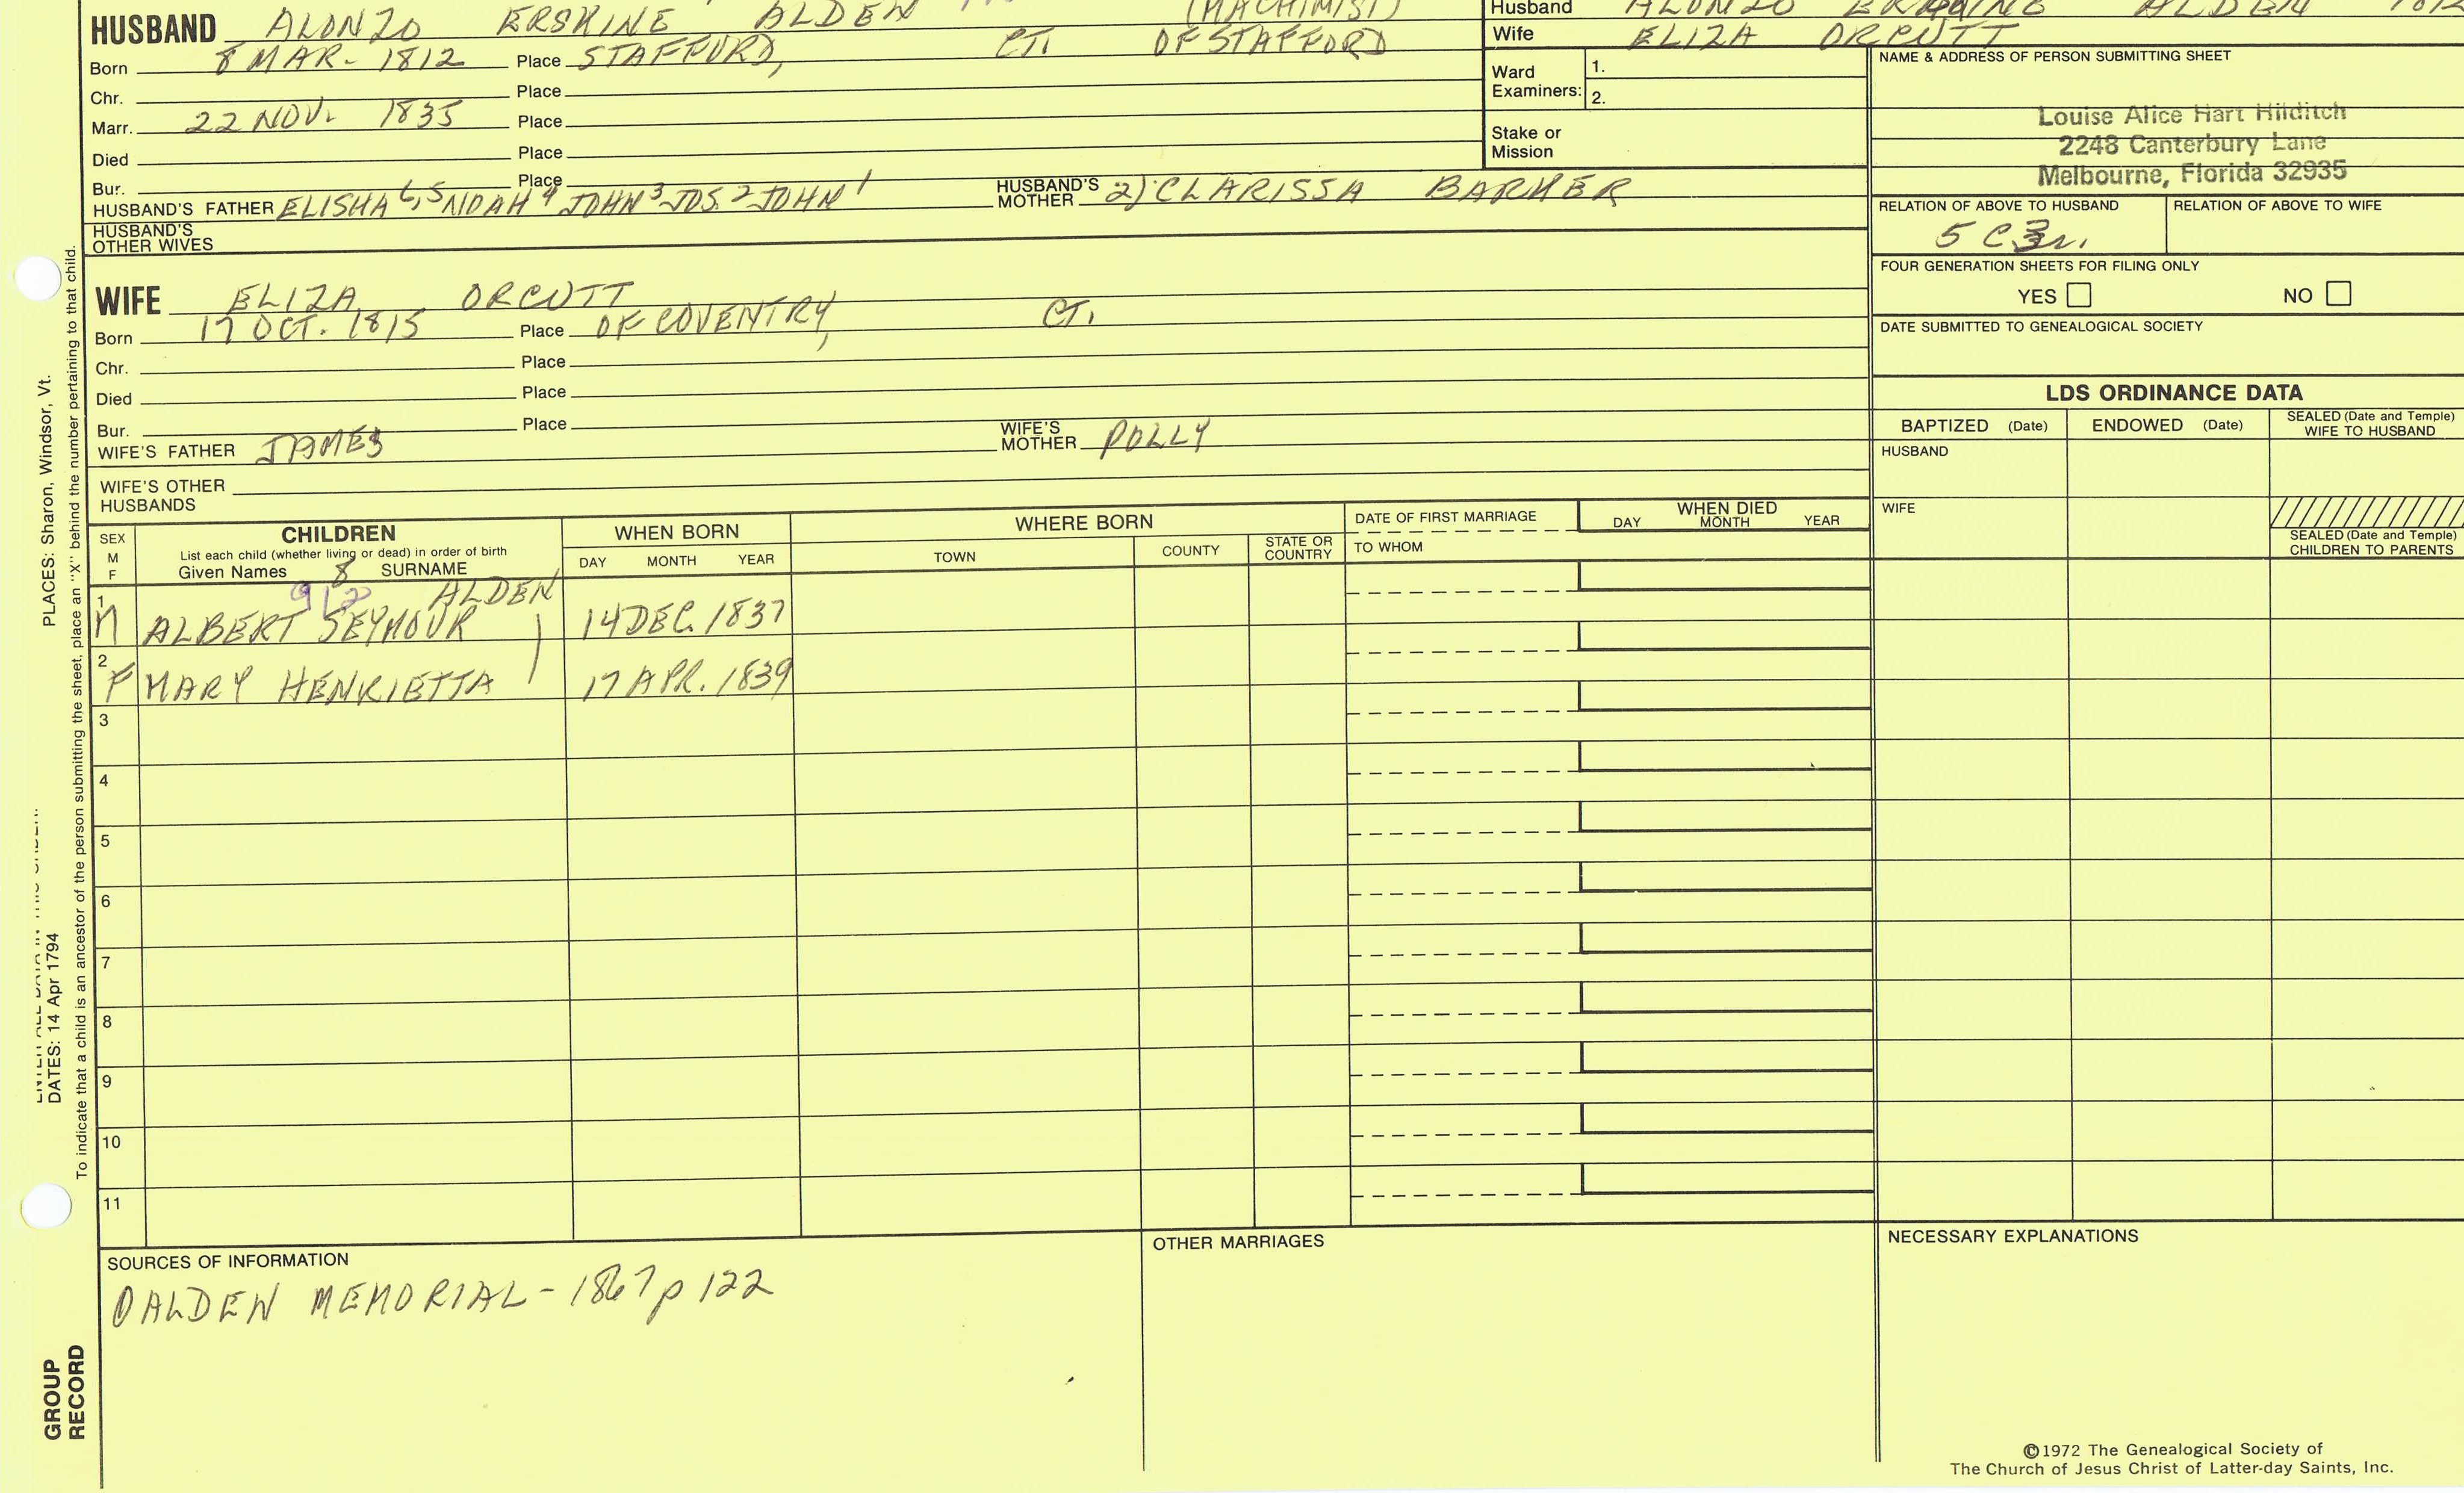 HUSBAND ALONZO ERSKINE ALDEN (MACHINIST)
Born 8 MAR- 1812 Place STAFFORD, CT. OF STAFFORD
Chr. Place
Marr. 22 NOV. 1835 Place
Died Place
Bur. Place
HUSBAND'S FATHER ELISHA 6,5 NOAH 4 JOHN 3 JOS. 2 JOHN 1 HUSBAND'S MOTHER 2) CLARISSA BARKER
HUSBAND'S OTHER WIVES
WIFE ELIZA ORCUTT
Born 17 OCT. 1815 Place OF COVENTRY, CT.
Chr. Place
Died Place
Bur. Place
WIFE'S FATHER JAMES WIFE'S MOTHER POLLY
WIFE'S OTHER HUSBANDS
Husband ALONZO ERSKINE ALDEN 1812
Wife ELIZA ORCUTT
Ward Examiners: 1.
2.
Stake or Mission
NAME & ADDRESS OF PERSON SUBMITTING SHEET
Louise Alice Hart Hilditch
2248 Canterbury Lane
Melbourne, Florida 32935
RELATION OF ABOVE TO HUSBAND RELATION OF ABOVE TO WIFE
5 C
FOUR GENERATION SHEETS FOR FILING ONLY
YES NO
DATE SUBMITTED TO GENEALOGICAL SOCIETY
LDS ORDINANCE DATA
BAPTIZED (Date) ENDOWED (Date) SEALED (Date and Temple) WIFE TO HUSBAND
HUSBAND
WIFE
SEALED (Date and Temple) CHILDREN TO PARENTS
SEX M F CHILDREN WHEN BORN WHERE BORN DATE OF FIRST MARRIAGE WHEN DIED
List each child (whether living or dead) in order of birth
Given Names 8 SURNAME DAY MONTH YEAR TOWN COUNTY STATE OR COUNTRY TO WHOM DAY MONTH YEAR
912 ALDEN
1 M ALBERT SEYMOUR 14 DEC. 1837
2 F MARY HENRIETTA 17 APR. 1839
3
4
5
6
7
8
9
10
11
SOURCES OF INFORMATION
ALDEN MEMORIAL - 1867 p 122
OTHER MARRIAGES
NECESSARY EXPLANATIONS
©1972 The Genealogical Society of
The Church of Jesus Christ of Latter-day Saints, Inc.
PLACES: Sharon, Windsor, Vt.
DATES: 14 Apr 1794
To indicate that a child is an ancestor of the person submitting the sheet, place an "X" behind the number pertaining to that child.
GROUP
RECORD